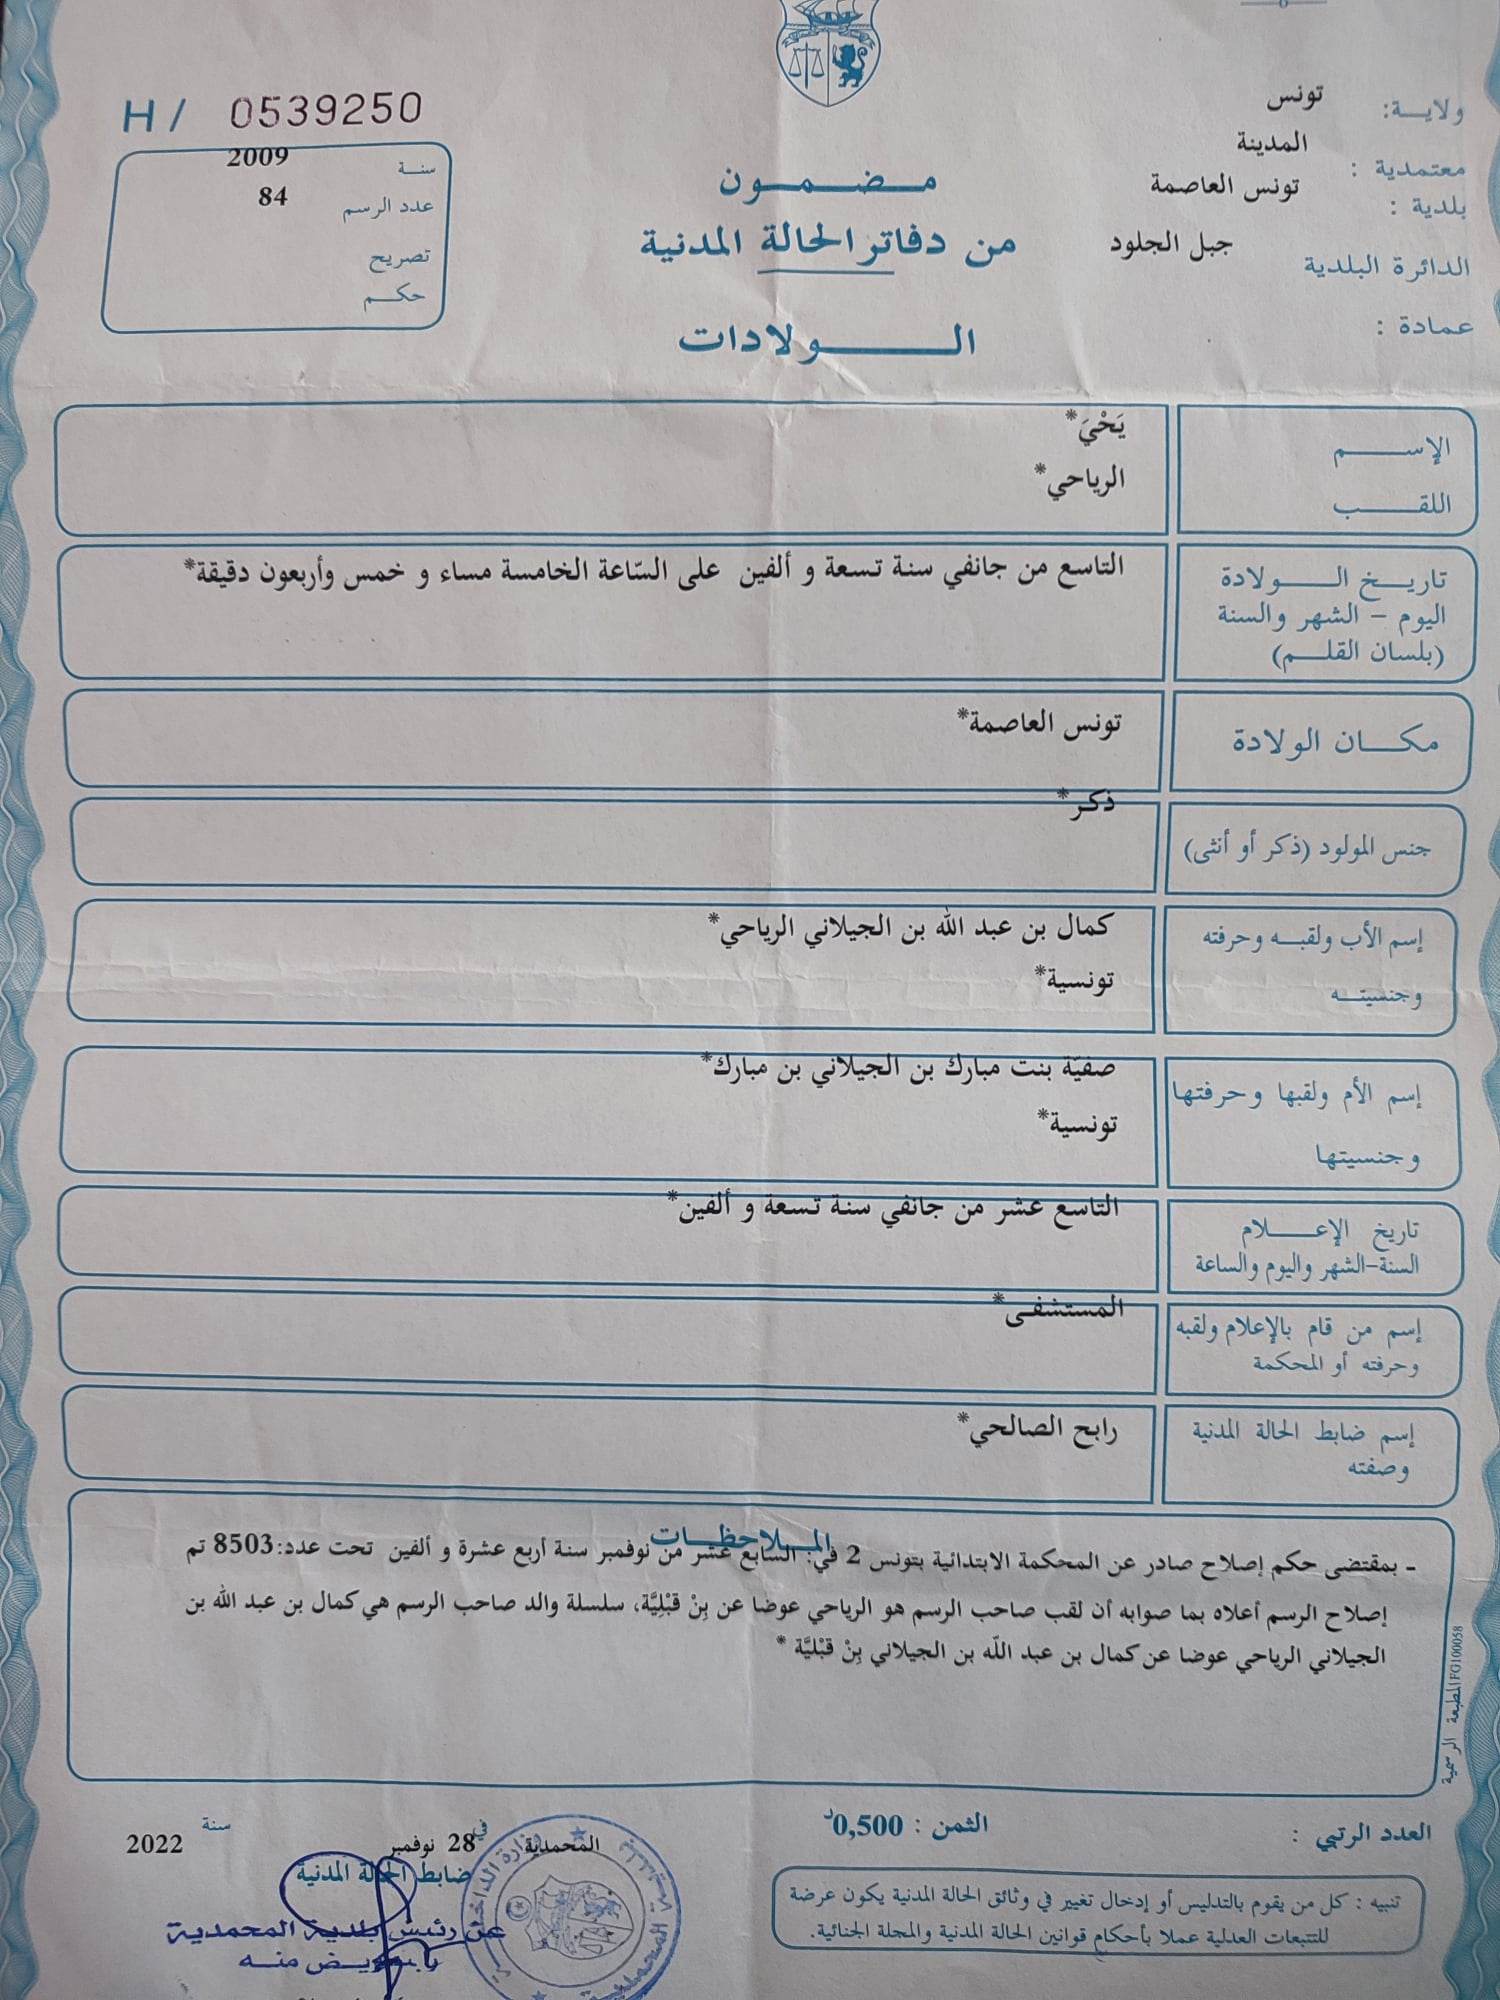 H / 0539250
سنة 2009
عدد الرسم 84
تصريح
حكم
ولاية: تونس
معتمدية : المدينة
بلدية : تونس العاصمة
الدائرة البلدية جبل الجلود
عمادة :
مضمون
من دفاتر الحالة المدنية
الولادات
الإسم يَحْيَ*
اللقب الرياحي*
تاريخ الولادة
اليوم - الشهر والسنة
(بلسان القلم)
التاسع من جانفي سنة تسعة و ألفين على السّاعة الخامسة مساء و خمس وأربعون دقيقة*
مكان الولادة تونس العاصمة*
جنس المولود (ذكر أو أنثى) ذكر*
إسم الأب ولقبه وحرفته كمال بن عبد الله بن الجيلاني الرياحي*
وجنسيته تونسية*
إسم الأم ولقبها وحرفتها صفيّة بنت مبارك بن الجيلاني بن مبارك*
وجنسيتها تونسية*
تاريخ الإعلام التاسع عشر من جانفي سنة تسعة و ألفين*
السنة-الشهر واليوم والساعة
إسم من قام بالإعلام ولقبه المستشفى*
وحرفته أو المحكمة
إسم ضابط الحالة المدنية رابح الصالحي*
وصفته
الملاحظات
- بمقتضى حكم إصلاح صادر عن المحكمة الابتدائية بتونس 2 في: السابع عشر من نوفمبر سنة أربع عشرة و ألفين تحت عدد: 8503 تم
إصلاح الرسم أعلاه بما صوابه أن لقب صاحب الرسم هو الرياحي عوضا عن بِنْ قَبْلِيَّة، سلسلة والد صاحب الرسم هي كمال بن عبد الله بن
الجيلاني الرياحي عوضا عن كمال بن عبد اللّه بن الجيلاني بِنْ قَبْليَّة *
المطبعة الرسمية FG100058
العدد الرتبي :
الثمن : 0,500د
المحمدية في 28 نوفمبر سنة 2022
ضابط الحالة المدنية
عن رئيس بلدية المحمدية
وبتفويض منه
تنبيه : كل من يقوم بالتدليس أو إدخال تغيير في وثائق الحالة المدنية يكون عرضة
للتتبعات العدلية عملا بأحكام قوانين الحالة المدنية والمجلة الجنائية.
وزارة الداخلية
المحمدية